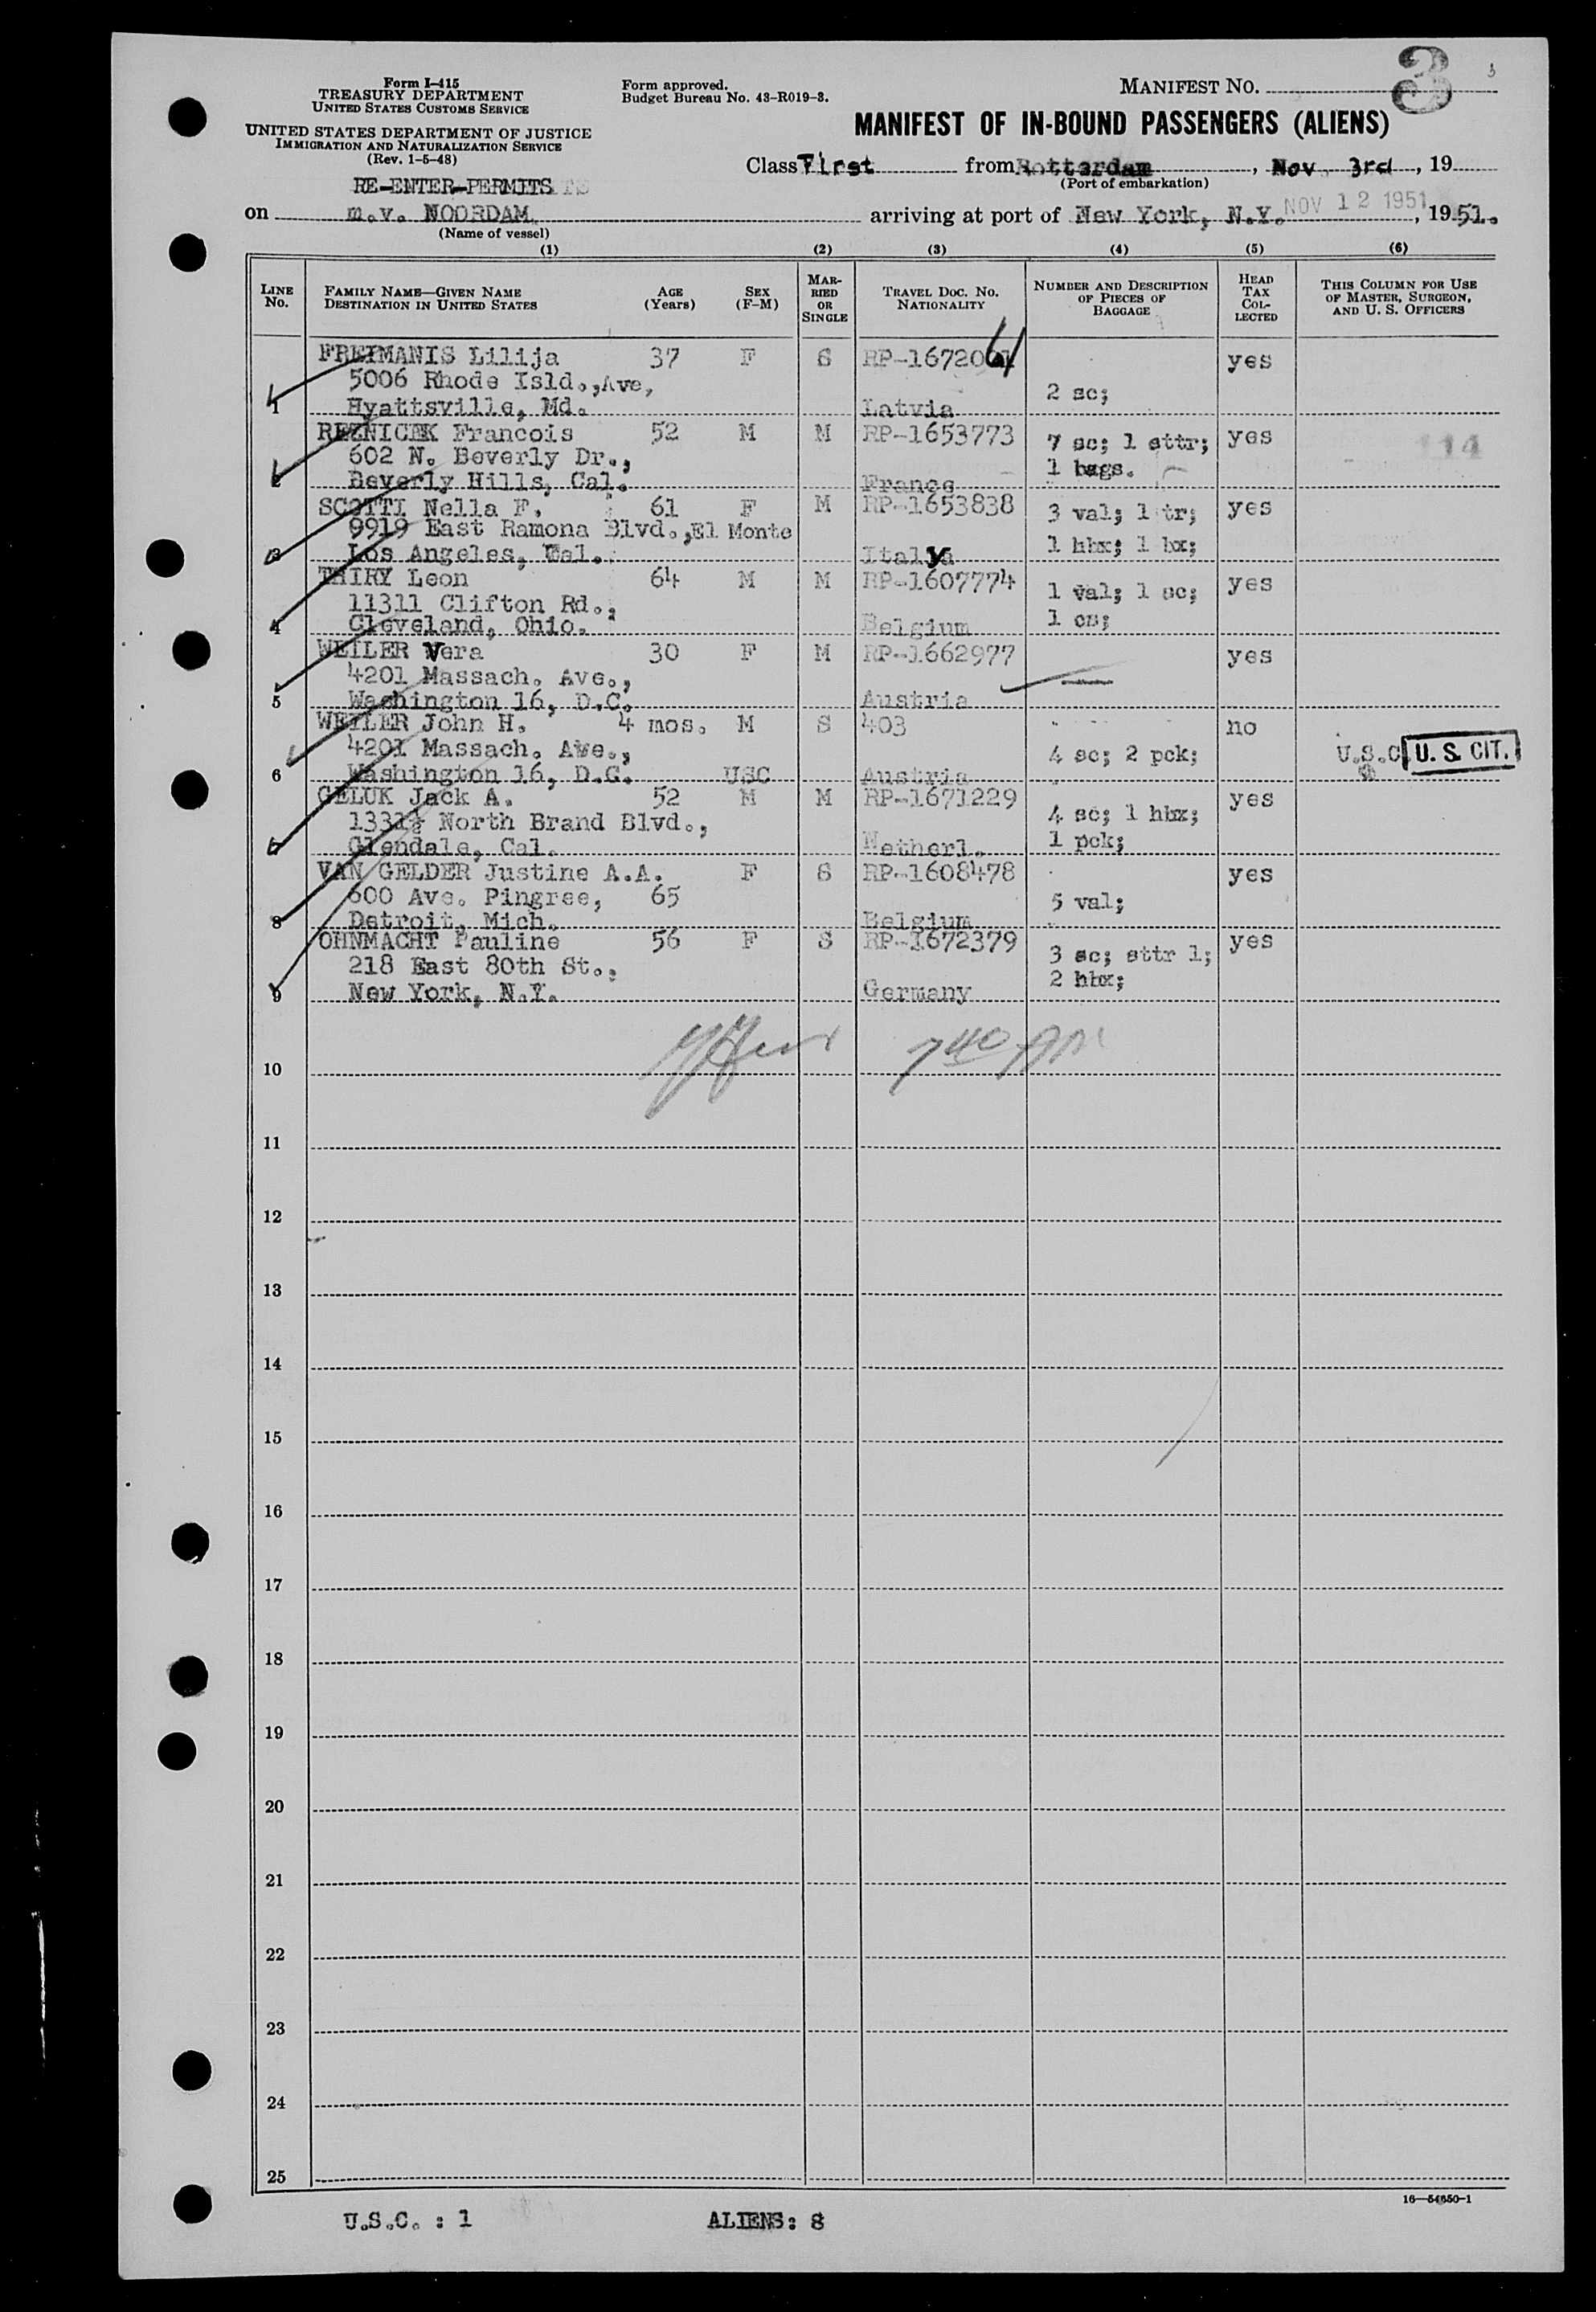 Form I-415
TREASURY DEPARTMENT
UNITED STATES CUSTOMS SERVICE
UNITED STATES DEPARTMENT OF JUSTICE
IMMIGRATION AND NATURALIZATION SERVICE
(Rev. 1-5-48)
Form approved.
Budget Bureau No. 43-R019-3.
MANIFEST NO. 3
3
MANIFEST OF IN-BOUND PASSENGERS (ALIENS)
Class First from Rotterdam, Nov. 3rd, 19
(Port of embarkation)
RE-ENTER-PERMITS
on m.v. NOORDAM arriving at port of New York, N.Y. NOV 12 1951, 1951.
(Name of vessel)
(1) (2) (3) (4) (5) (6)
LINE No. FAMILY NAME—GIVEN NAME DESTINATION IN UNITED STATES AGE (Years) SEX (F-M) MARRIED OR SINGLE TRAVEL DOC. NO. NATIONALITY NUMBER AND DESCRIPTION OF PIECES OF BAGGAGE HEAD TAX COLLECTED THIS COLUMN FOR USE OF MASTER, SURGEON, AND U. S. OFFICERS
FREIMANIS Lilija 37 F S RP-1672064 yes
5006 Rhode Isld.,Ave, 2 sc;
1 Hyattsville, Md. Latvia
REZNICEK Francois 52 M M RP-1653773 7 sc; 1 sttr; yes
602 N. Beverly Dr., 1 bags. 114
2 Beverly Hills, Cal. France
SCOTTI Nella F. 61 F M RP-1653838 3 val; 1 tr; yes
9919 East Ramona Blvd.,El Monte
3 Los Angeles, Cal. Italy 1 hbx; 1 bx;
THIRY Leon 64 M M RP-1607774 1 val; 1 sc; yes
11311 Clifton Rd., 1 cn;
4 Cleveland, Ohio. Belgium
WEILER Vera 30 F M RP-1662977 yes
4201 Massach. Ave.,
5 Washington 16, D.C. Austria
WEILER John H. 4 mos. M S 403 no
4201 Massach. Ave., 4 sc; 2 pck; U.S.C. U. S. CIT.
6 Washington 16, D.C. USC Austria
GELUK Jack A. 52 M M RP-1671229 4 sc; 1 hbx; yes
1331½ North Brand Blvd., 1 pck;
7 Glendale, Cal. Netherl.
VAN GELDER Justine A.A. F S RP-1608478 yes
600 Ave. Pingree, 65 5 val;
8 Detroit, Mich. Belgium
OHNMACHT Pauline 56 F S RP-1672379 3 sc; sttr 1; yes
218 East 80th St., 2 hbx;
9 New York, N.Y. Germany
7 40 AM
10
11
12
13
14
15
16
17
18
19
20
21
22
23
24
25
16—54650-1
U.S.C. : 1 ALIENS: 8